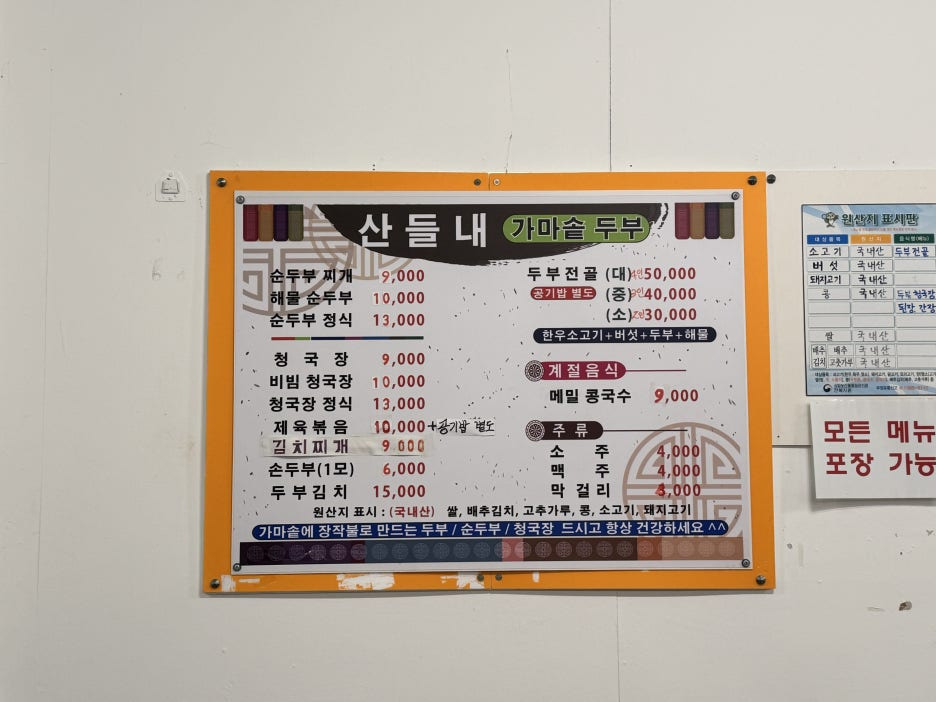 산들내 가마솥 두부
순두부 찌개 9,000
해물 순두부 10,000
순두부 정식 13,000
청국장 9,000
비빔 청국장 10,000
청국장 정식 13,000
제육볶음 10,000 +공기밥 별도
김치찌개 9,000
손두부(1모) 6,000
두부김치 15,000
두부전골 (대) 4인 50,000
공기밥 별도 (중) 3인 40,000
(소) 2인 30,000
한우소고기+버섯+두부+해물
계절음식
메밀 콩국수 9,000
주류
소주 4,000
맥주 4,000
막걸리 3,000
원산지 표시 : (국내산) 쌀, 배추김치, 고추가루, 콩, 소고기, 돼지고기
가마솥에 장작불로 만드는 두부 / 순두부 / 청국장 드시고 항상 건강하세요 ^^
원산지 표시판
대상품목 원산지 음식명(메뉴)
소고기 국내산 두부전골
버섯 국내산
돼지고기 국내산
콩 국내산 두부, 청국장
된장, 간장
쌀 국내산
배추김치 배추 국내산
고춧가루 국내산
모든 메뉴
포장 가능